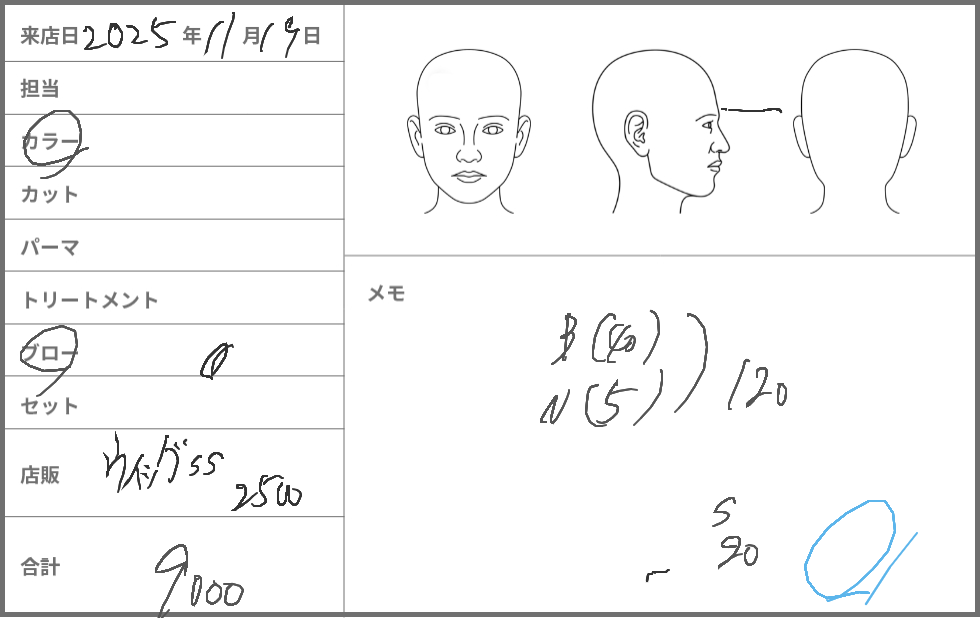 来店日 2025 年 11 月 19 日
担当
カラー
カット
パーマ
トリートメント
ブロー 0
セット
店販 ウィッグSS
2500
合計 9000
メモ
B (40)
N (5) ) 120
S
20